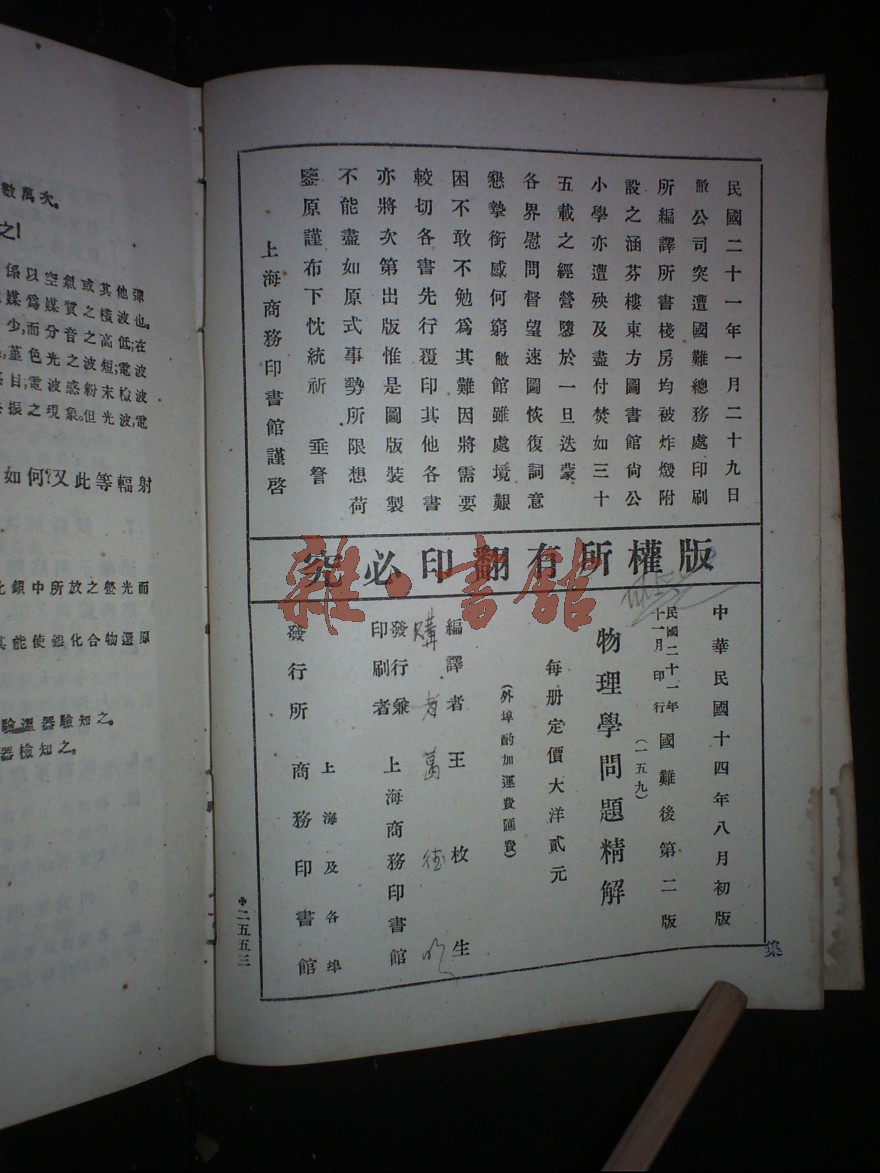 民國二十一年一月二十九日
敝公司突遭國難總務處印刷
所編譯所書棧房均被炸燬附
設之涵芬樓東方圖書館尙公
小學亦遭殃及盡付焚如三十
五載之經營隳於一旦迭蒙
各界慰問督望速圖恢復詞意
懇摯銜感何窮敝館雖處境艱
困不敢不勉爲其難因將需要
較切各書先行覆印其他各書
亦將次第出版惟是圖版裝製
不能盡如原式事勢所限想荷
鑒原謹布下忱統祈 垂詧
上海商務印書館謹啓
版權所有翻印必究
中華民國十四年八月初版
民國二十一年十一月印行 國難後第二版
(一五九)
物理學問題精解
每册定價大洋貳元
(外埠酌加運費匯費)
編譯者 王枚生
購者 葛
發行兼印刷者 上海商務印書館
發行所 上海及各埠 商務印書館
二五五三
集
數萬次。
之!
係以空氣或其他彈
媒爲媒質之橫波也。
少,而分音之高低;在
,堇色光之波短;電波
目;電波感粉末檢波
振之現象。但光波,電
如何?又此等輻射
鎖中所放之螢光而
其能使銀化合物還原
驗溫器驗知之。
器檢知之。
雜·書館